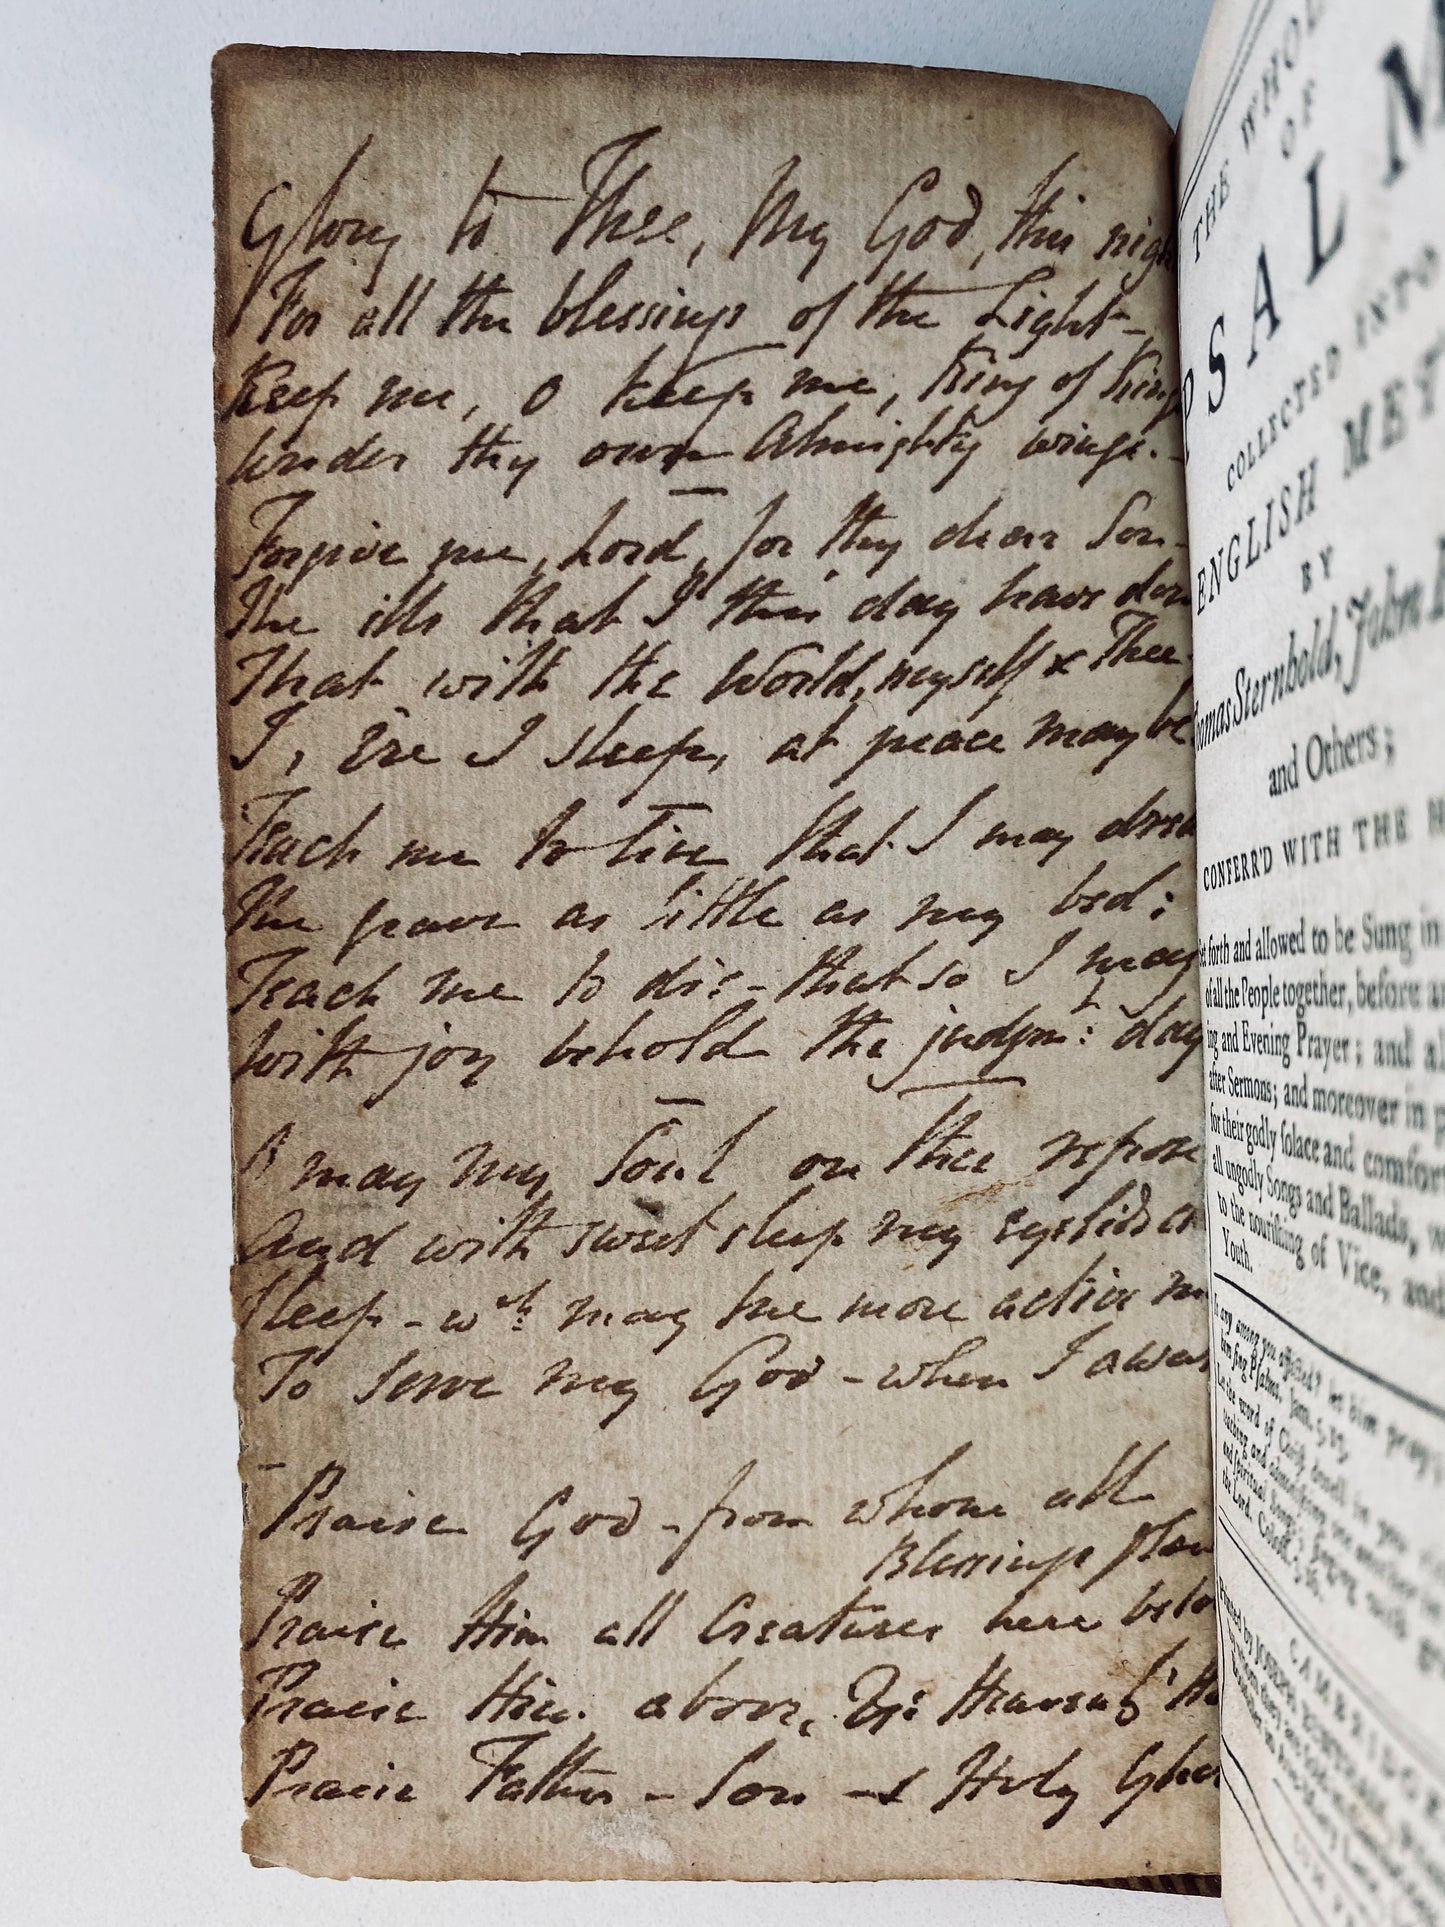 Glory to Thee, My God, this nigh
For all the blessings of the Light-
Keep me, O keep me, King of Kings
Under thy own Almighty wings.
Forgive me, Lord, for thy dear Son-
The ills that I this day have done
That with the World, myself & Thee-
I, 'ere I sleep, at peace may be
Teach me to live that I may dread
The grave as little as my bed;
Teach me to die- that so I may
With joy behold the judgmt: day
O may my Soul on thee repose
And with sweet sleep my eyelids
Sleep - wch: may me more active
To serve my God - when I awa
Praise God - from whom all
Blessings flow
Praise Him all Creatures here below
Praise Him above,
Praise Father - Son - & Holy Ghos
THE WHOL
OF
PSALM
COLLECTED INTO
ENGLISH MET
BY
Thomas Sternhold, John H
and Others;
CONFERR'D WITH THE H
Set forth and allowed to be Sung in
of all the People together, before an
ing and Evening Prayer; and al
after Sermons; and moreover in p
for their godly solace and comfort
all ungodly Songs and Ballads, w
to the nourishing of Vice, and
Youth.
Is any among you afflicted? let him pray;
him sing Psalms. Jam. 5. 13.
Let the word of Christ dwell in you
teaching and admonishing one another in
and spiritual Songs, singing with gr
the Lord. Coloss. 3. 16.
CAMBRIDGE
Printed by JOSEPH